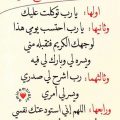 اولها: يارب توكلت عليك
وثانيها: يارب احتسب يومي هذا
لوجهك الكريم فتقبله مني
ويسره لي وبارك لي فيه
وثالثهما: رب اشرح لي صدري
ويسرلي أمري
ورابعها: اللهم إني استودعتك نفسي